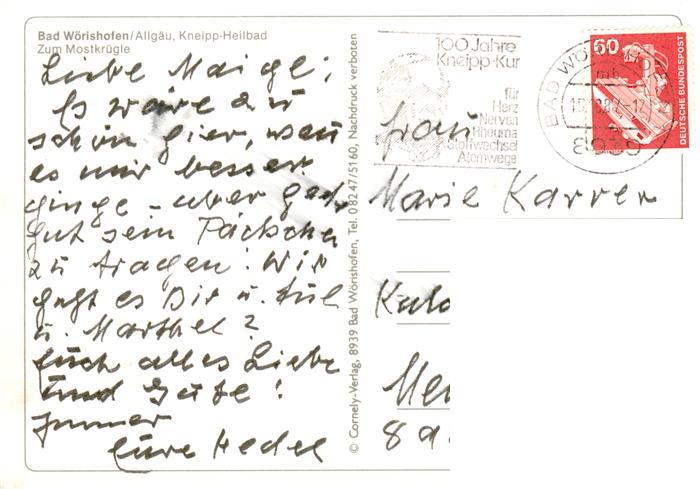 Bad Wörishofen/Allgäu, Kneipp-Heilbad
Zum Mostkrügle
Liebe
Es wäre zu
schön hier, wen
es mir besser
ginge – aber
gut sein Päckchen
zu tragen! Wie
geht es Dir u.
u. Marthel?
Euch alles Liebe
und Gute!
Immer
Eure Hedel
© Cornely-Verlag, 8939 Bad Wörishofen, Tel. 08247/5160, Nachdruck verboten
100 Jahre
Kneipp-Kur
für
Herz
Nerven
Rheuma
Stoffwechsel
Atemwege
BAD WÖ
8939
60
DEUTSCHE BUNDESPOST
Frau
Marie Karrer